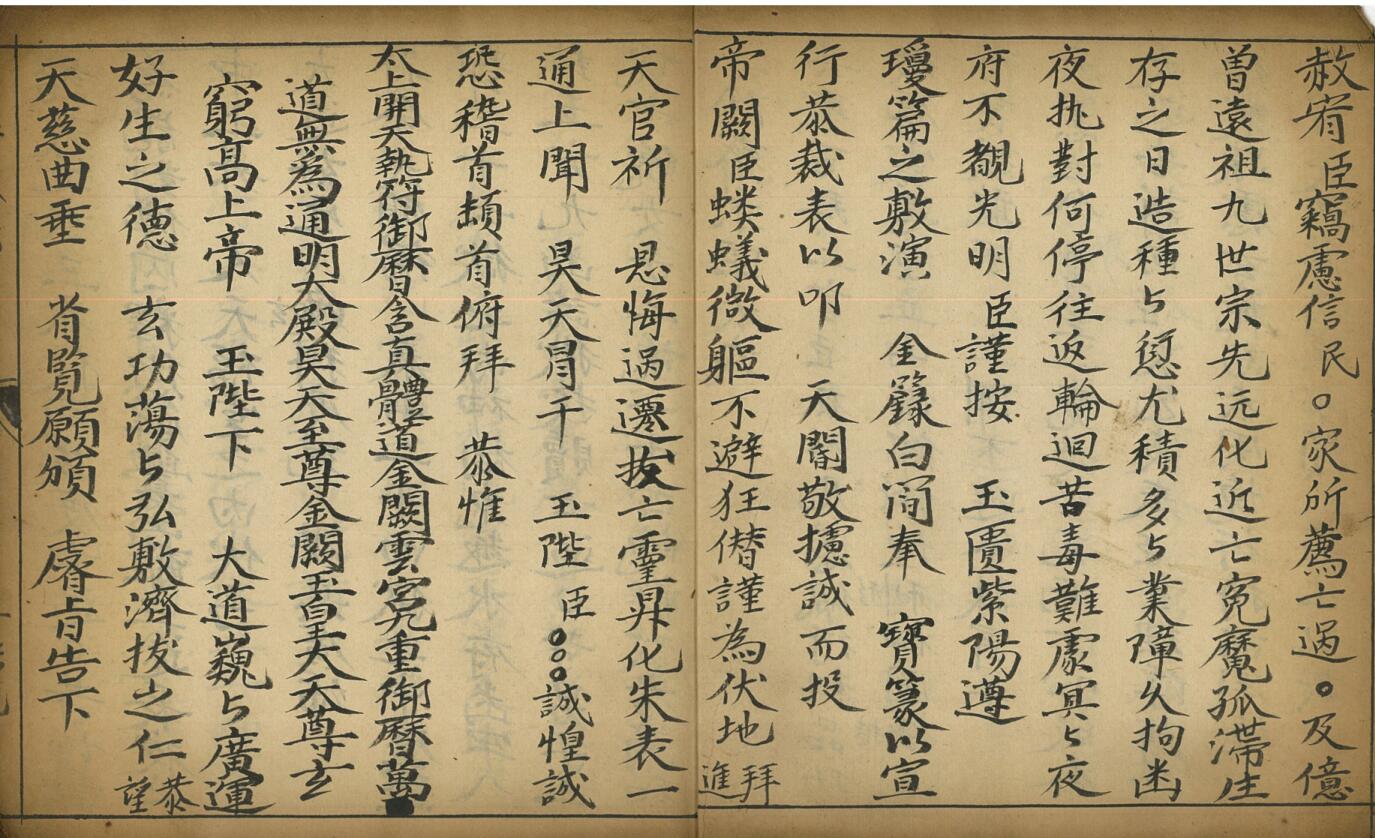 赦宥臣竊慮信民○家所薦亡過○及億
曾遠祖九世宗先远化近亡冤魔孤滞生
存之日造種与愆尤積多与業障久拘幽
夜执對何停往返輪迴苦毒難處冥与夜
府不覩光明 臣謹按 玉匱紫陽遵
瓊篇之敷演 金籙白简奉 寶篆以宣
行恭裁表以叩 天閽敬攄誠而投
帝闕臣蝼蟻微軀不避狂僭謹為伏地 拜進
天官祈 恳悔過遷拔亡靈昇化朱表一
通上聞 昊天冐干 玉陛 臣○○○誠惶誠
恐稽首頓首俯拜 恭惟
太上開天執符御曆含真體道金闕雲宫九重御曆萬
道無為通明大殿昊天至尊金闕玉皇大天尊玄
穹高上帝 玉陛下 大道巍与廣運
好生之德 玄功蕩与弘敷濟拔之仁 恭望
天慈曲垂 省覧願頒 睿旨告下